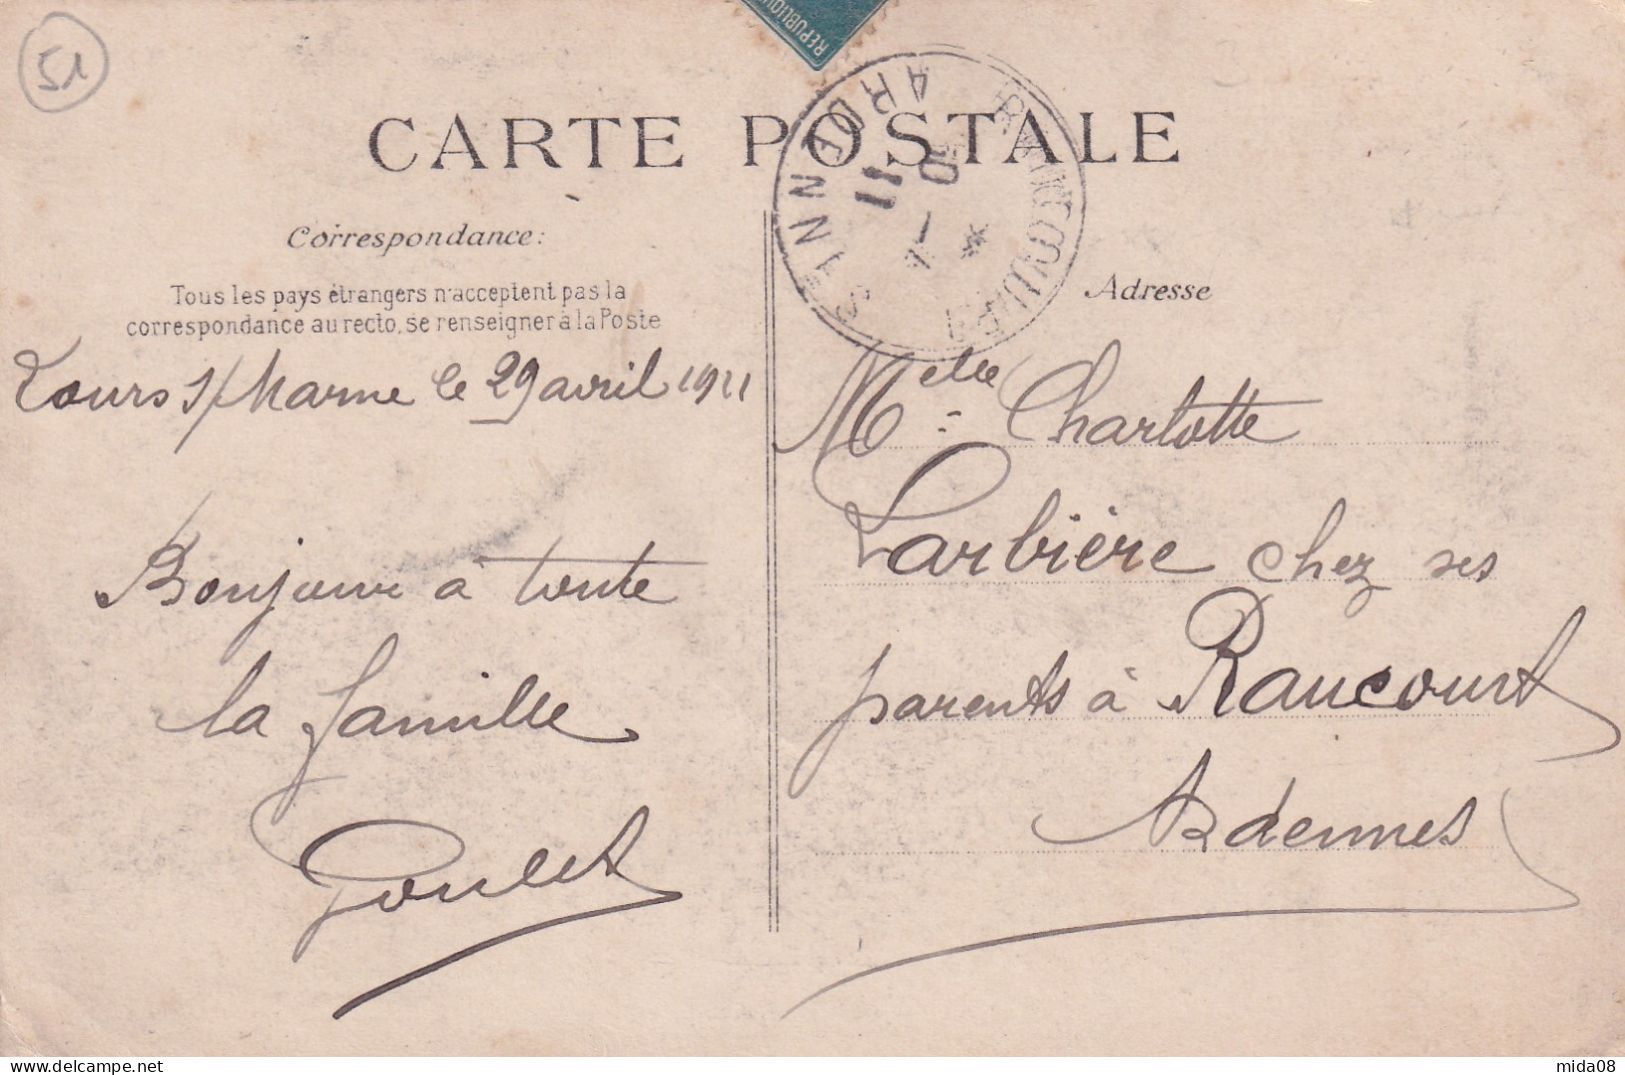 51
REPUBLIQUE
CARTE POSTALE
RAUCOURT
ARDENNES
11
Correspondance:
Tous les pays étrangers n'acceptent pas la
correspondance au recto, se renseigner à la Poste
Adresse
Tours s/ Marne le 29 avril 1911
Bonjour à toute
la famille
Poulet
Melle Charlotte
Larbière chez ses
parents à Raucourt
Ardennes
mida08